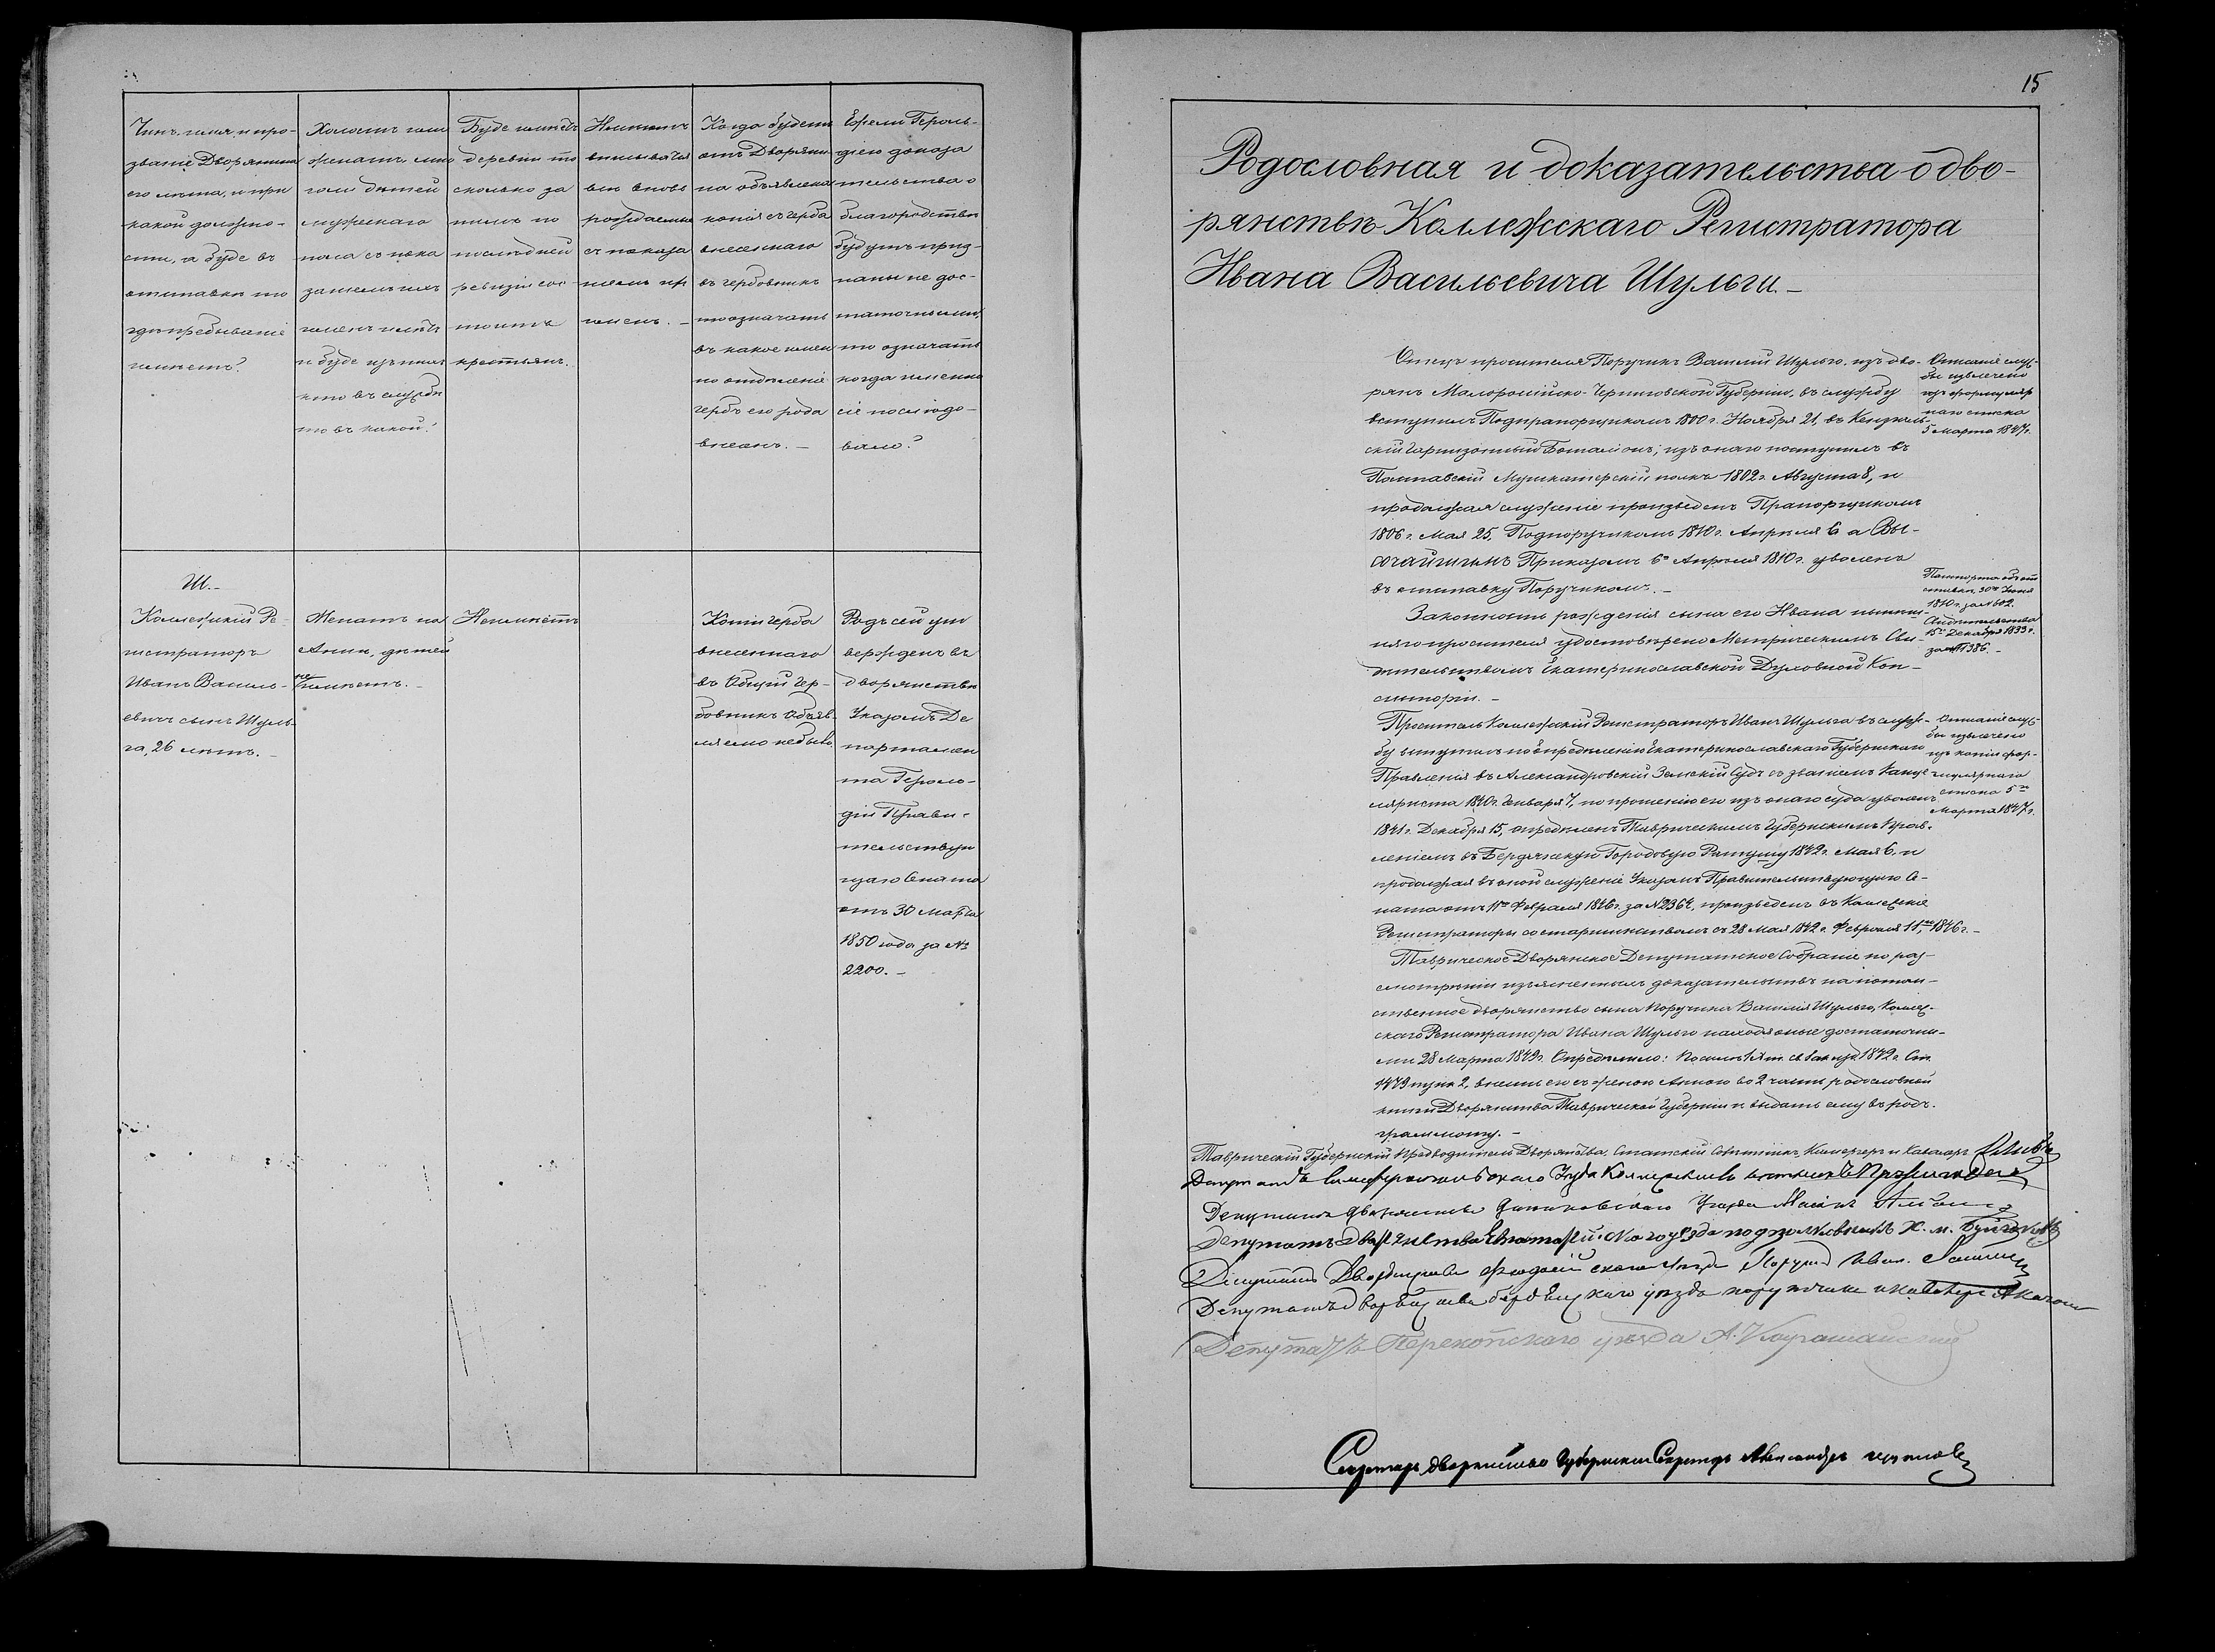 Чинъ имя, и про-
званіе Дворянина
его лѣта, и при
какой должно-
сти, а буде въ
отставкѣ то
гдѣ пребываніе
имѣетъ?
Холостъ или
женатъ или
голи дѣтей
мужескаго
пола съ пока
заніемъ ихъ
именъ и лѣтъ
и буде изъ нихъ
кто въ службѣ
то въ какой?
Буде имѣетъ
деревни то
сколько за
нимъ по
послѣдней
ревизіи сос
тоитъ
крестьянъ.
вписывать
вновь
рождаемые
съ показа
ніемъ
именъ. –
Когда будетъ
отъ Дворяни
на объявлена
копія съ герба
внесеннаго
въ гербовникъ
то означать
въ какое имен
но отдѣленіе
гербъ его рода
внесенъ. –
Ежели Героль-
діею доказа
тельства о
благородствѣ
будутъ приз-
наны не дос-
таточными,
то означать
когда именно
сіе послѣдо-
вало?
Ш. –
Коллежскій Ре-
гистраторъ
Иванъ Василь-
евичъ сынъ Шуль-
га, 26 лѣтъ. –
Женатъ на
Аннѣ, дѣтей
не имѣетъ. –
Неимѣетъ
Копіи герба
внесеннаго
въ Общій Гер-
бовникъ объяв-
ляемо небыло
Родъ сей ут
вержденъ въ
дворянствѣ
Указомъ Де
партамен
та Героль-
діи Прави-
тельствую
щаго Сената
отъ 30 Марта
1850 года за №
2200. –
15
Родословная и доказательства о дво-
рянствѣ Коллежскаго Регистратора
Ивана Васильевича Шульги. –
Отецъ просителя Поручикъ Василій Шульга, изъ дво-
рянъ Малороссійско-Черниговской Губерніи, въ службу
вступилъ Подпрапорщикомъ 1800 г. Ноября 21, въ
скій Гарнизонный Баталіонъ; изъ онаго поступилъ въ
Полтавскій Мушкатерскій полкъ 1802 г. Августа 8, и
продолжая служеніе произведенъ Прапорщикомъ
1806 г. Мая 25, Подпоручикомъ 1810 г. Апрѣля 6 а Вы-
сочайшимъ Приказомъ 6го Апрѣля 1810 г. уволенъ
въ отставку Поручикомъ. –
Описаніе служ-
бы извлечено
изъ формуляр
наго списка
5 Марта 1847 г.
Паспорта объ от
ставкѣ, 30го Іюня
1810 г. за № 602.
Законность рожденія сына его Ивана нынѣш-
няго просителя удостовѣрено Метрическимъ Сви-
дѣтельствомъ Екатеринославской Духовной Кон-
систоріи. –
Свидѣтельства
15го Декабря 1839 г.
за № 11386. –
Проситель Коллежскій Регистраторъ Иванъ Шульга въ служ-
бу вступилъ по опредѣленію Екатеринославскаго Губернскаго
Правленія въ Александровскій Земскій Судъ съ званіемъ Канце-
ляриста 1840 г. Генваря 7, по прошенію его изъ онаго суда уволенъ
1841 г. Декабря 15, опредѣленъ Таврическимъ Губернскимъ Прав-
леніемъ въ Бердянскую Городовую Ратушу 1842 г. Мая 6. и
продолжая въ оной служеніе Указомъ Правительствующаго Се-
ната отъ 11го Февраля 1846 г. за № 2364, произведенъ въ Коллежскіе
Регистраторы со старшинствомъ съ 28 Мая 1842 г. Февраля 11го 1846 г. –
Описаніе служ-
бы извлечено
изъ копіи фор-
мулярнаго
списка 5го
Марта 1847 г.
Таврическое Дворянское Депутатское Собраніе по раз-
смотрѣніи изъясненныхъ доказательствъ на потом-
ственное дворянство сына Поручика Василія Шульги, Коллеж-
скаго Регистратора Ивана Шульги находя оные достаточны-
ми 28 Марта 1849 г. Опредѣлило: По силѣ IX т. св. Зак. изд. 1842 г. Ст.
1479 пунк 2, внести его съ женою Анною во 2 часть родословной
книги Дворянства Таврической Губерніи и выдать ему въ родъ
грамоту. –
Таврическій Губернскій Предводитель Дворянства, Статскій Совѣтникъ, Камергеръ и Кавалеръ
Депутатъ Симферопольскаго Уѣзда
Депутатъ дворянства Днѣпровскаго Уѣзда
Депутатъ дворянства Евпаторійскаго уѣзда подполковникъ К. м.
Депутатъ Дворянства Феодосійскаго Уѣзда Поручикъ
Депутатъ дворянства бердянскаго уѣзда поручикъ и кавалеръ
Депутатъ Перекопскаго уѣзда А.
Секретарь дворянства Губернскій Секретарь Александръ